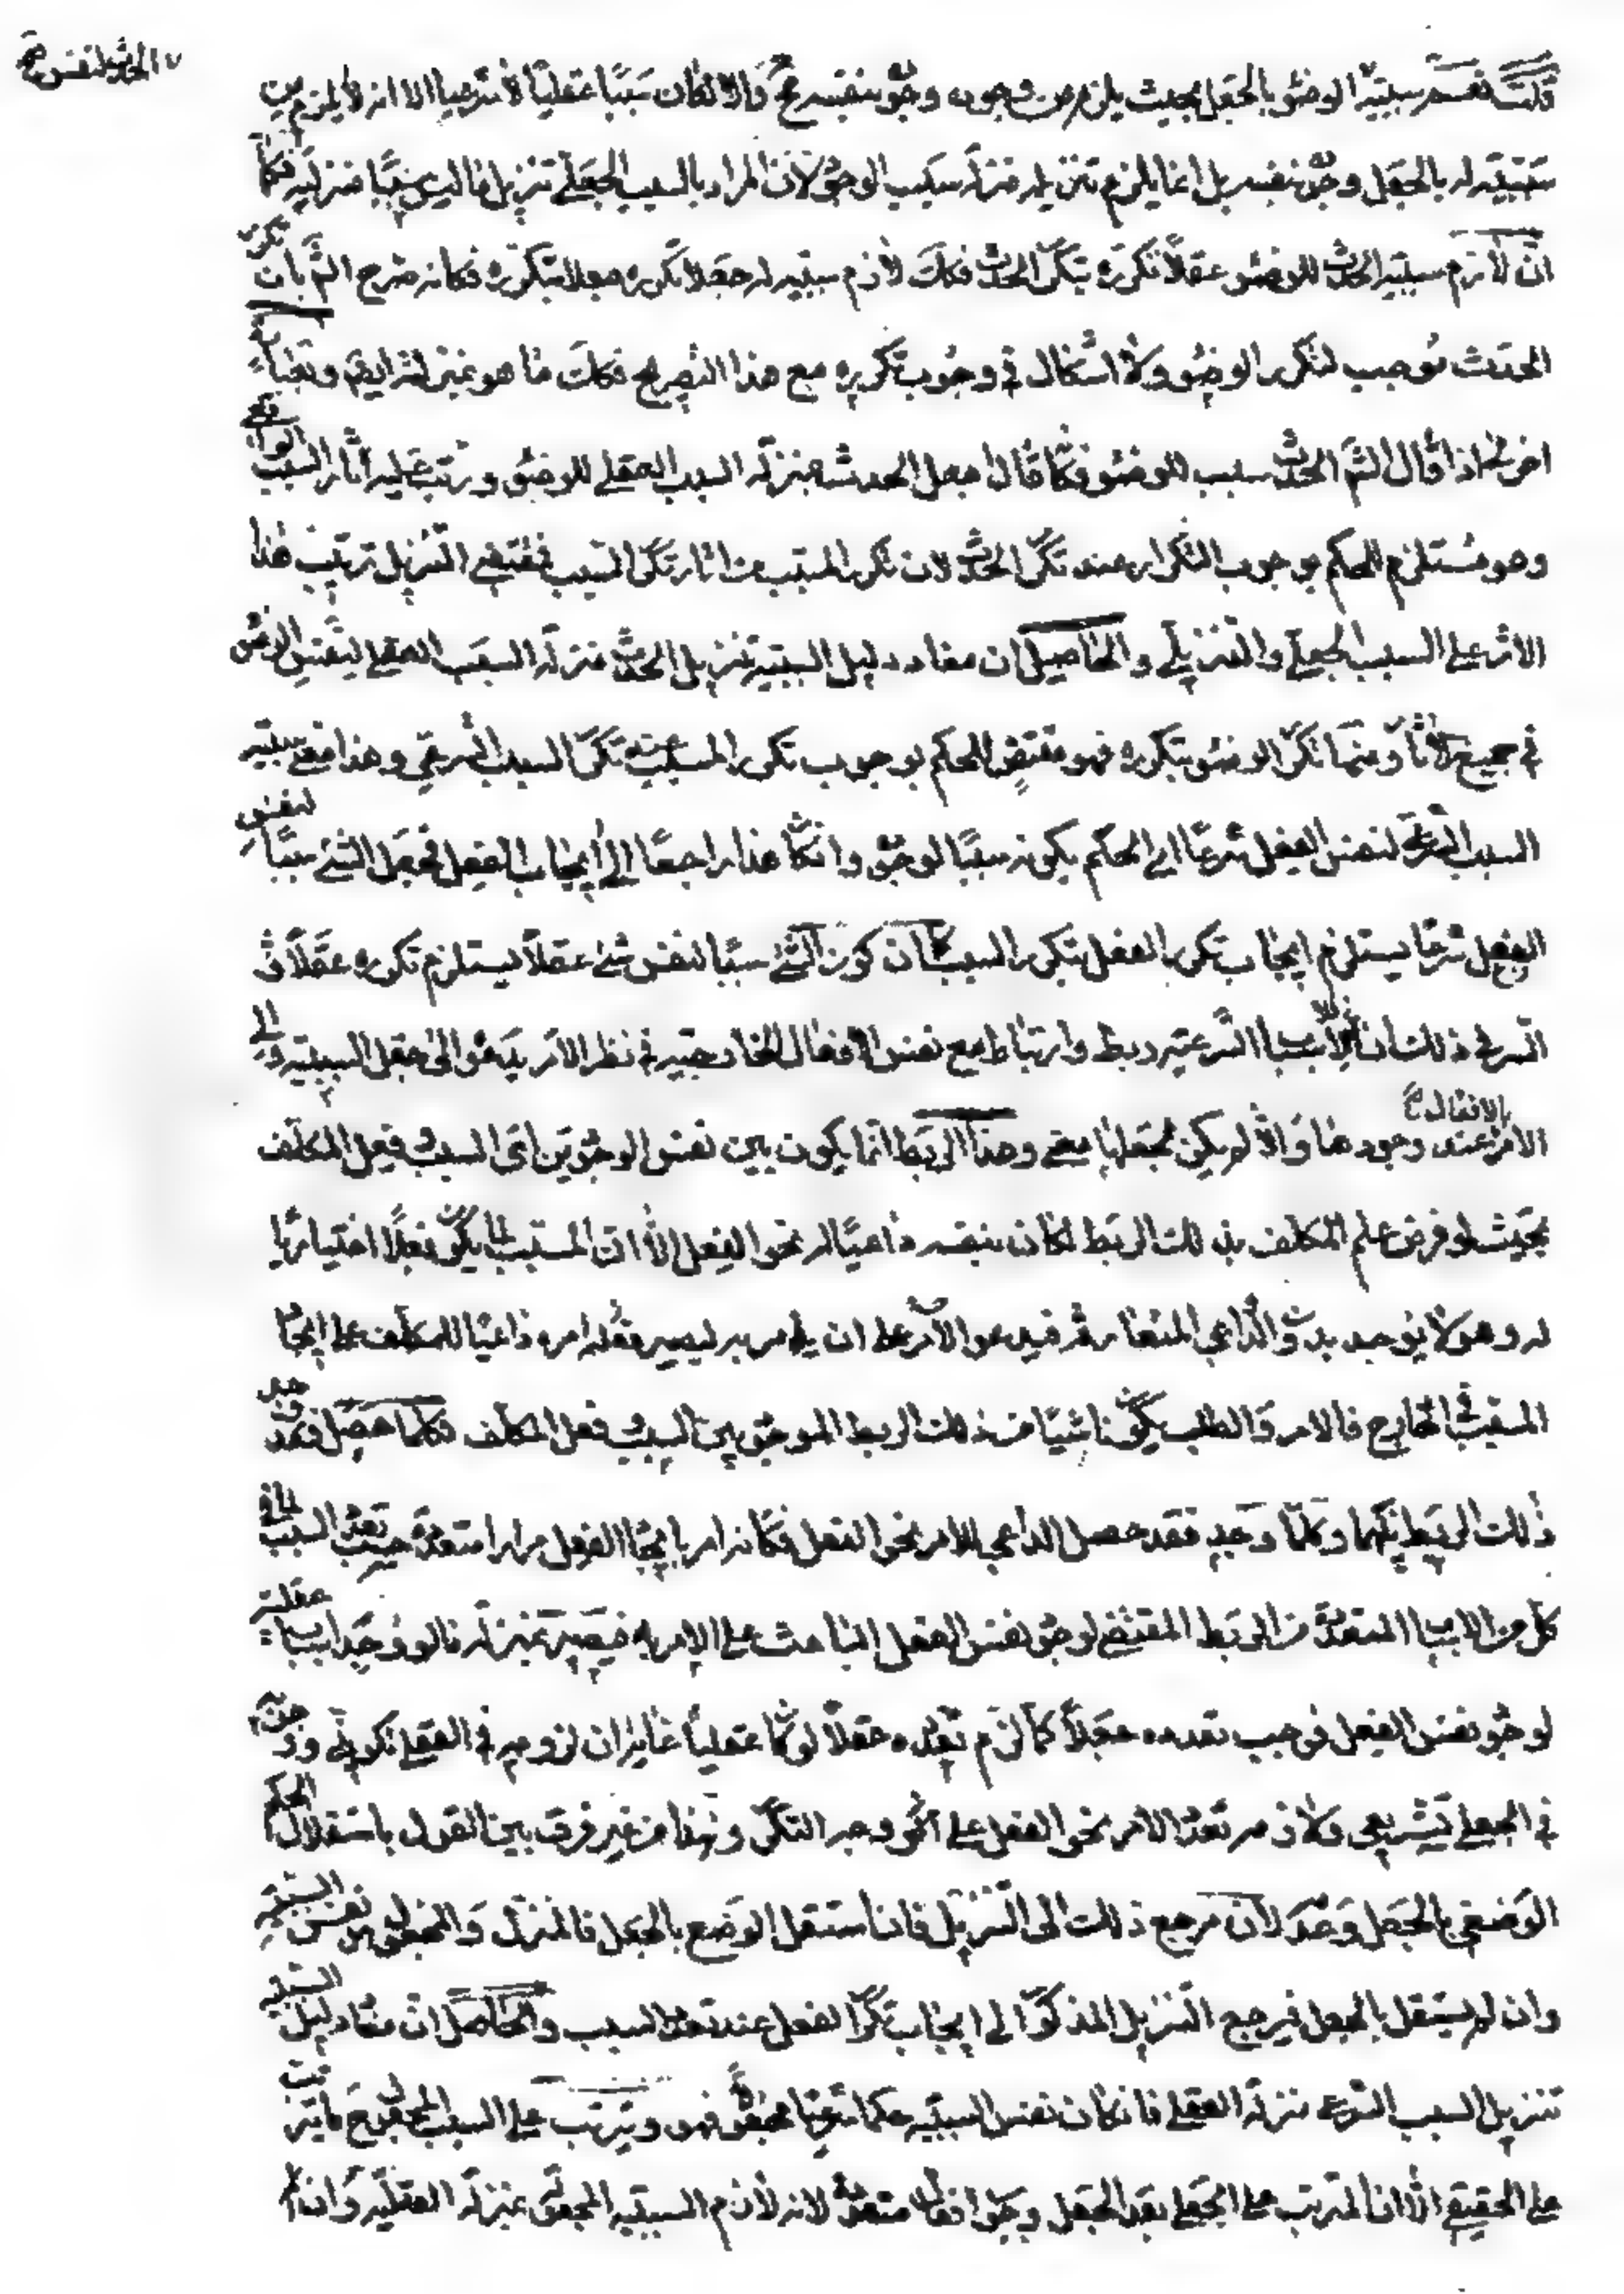 الحدث لنفس ح
قلت نعم سببية الوضوء بالجعل بحيث يلزم من وجوده وجوده بنفسه مح والا لكان سببا عقليا لا شرعيا الا انه لا يلزم من
سببيته له بالجعل وجود نفسه بل انما يلزم تنزيله منزلة سبب الوجود لان المراد بالسبب الجعلي تنزيل ما ليس سببا منزلته فكما
ان لازم سببية الحدث للوضوء عقلا تكرره بتكرر الحدث فكك لازم سببيته له جعلا تكرره جعلا بتكرره فكانه صرح الشم بان تكرر
الحدث موجب لتكرر الوضوء ولا اشكال في وجوب تكرره مع هذا التصريح فكك ما هو بمنزلته ايضا وبعبارة
اخرى اذا قال الشم الحدث سبب للوضوء فكما قال اجعل الحدث بمنزلة السبب العقلي للوضوء ورتب عليه اثار السبب الواقعي
وهو مستلزم للحكم بوجوب التكرار عند تكرر الحدث لان تكرر المسبب من اثار تكرر السبب فمقتضى التنزيل ترتيب هذا
الاثر على السبب الجعلي والتنزيلي والحاصل ان مفاد دليل السببية تنزيل الحدث منزلة السبب العقلي لنفس الوضوء
في جميع الاثار ومنها تكرر الوضوء بتكرره فهو مقتض للحكم بوجوب تكرر المسبب عند تكرر السبب الشرعي وهذا معنى سببية
السبب الشرعي لنفس الفعل شرعا اي الحكم بكونه سببا لوجوده وان كان هذا راجعا الى ايجاب الفعل فجعل الشيء سببا لنفس
الفعل شرعا يستلزم ايجاب تكرر الفعل بتكرر السبب كما ان كون الشيء سببا لنفس شيء عقلا يستلزم تكرره عقلا و
السر في ذلك ان للاسباب الشرعية ربط وارتباط مع نفس الافعال الخارجية في نظر الامر يدعوه الى جعل السببية والى
الامر بالافعال ح عند وجودها والا لم يكن لجعلها معنى وهذا الربط انما يكون بين نفس الوجودين اي السبب وفعل المكلف
بحيث لو فرض علم المكلف بذلك الربط لكان بنفسه داعيا له نحو الفعل الا ان المسبب لما يكون فعلا اختياريا
له وهو لا يوجد بدون الداعي المتعارف فيدعو الامر على ان يامر به ليصير بعد امره داعيا للمكلف على ايجاد
المسبب في الخارج فالامر والطلب يكون ناشيا من ذلك الربط الموجود بين السبب وفعل المكلف فكلما حصل فقد وجد
ذلك الربط بينهما وكلما وجد فقد حصل الداعي للامر نحو الفعل فكانه امر بايجاد الفعل مرارا متعددة حسب تعدد السبب لما في
كل من الاسباب المتعددة من الربط المقتضي لوجود نفس الفعل الباعث على الامر به فيصير بمنزلة ما لو وجد اسباب عقلية
لوجود نفس الفعل فيجب تعدده جعلا كما لزم تعدده عقلا لو كان عقليا غاية ان لزومه في العقلي تكويني
في الجعلي تشريعي ولازمه تعدد الامر نحو الفعل على نحو وجه التكرر ونهما من غير فرق بين القول باستقلال الحكم
الوضعي بالجعل وعدمه لان مرجع ذلك الى التنزيل فان استقل الوضع بالجعل فالمنزل والمجعول هو نفس السببية
وان لم يستقل بالجعل فيرجع التنزيل المذكور الى ايجاب تكرر الفعل عند تعدد السبب والحاصل ان مفاد دليل السببية
تنزيل السبب الشرعي منزلة العقلي فان كان نفس السببية حكما شرعيا مجعولا فهو ويترتب على السبب المجعول ح ما يترتب
على الحقيقي الا ان المترتب على الجعلي بعد الجعل وجوب افعال متعددة لانه لازم السببية المجعولة بمنزلة العقلية وان